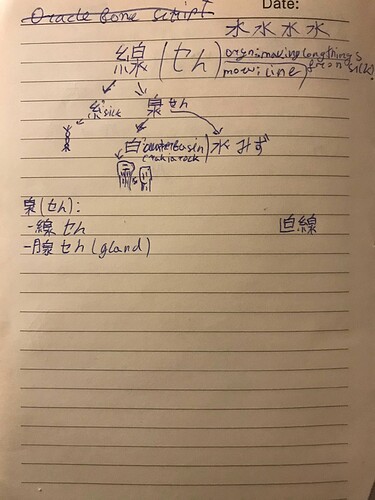 Oracle Bone Script Date:
水 水 水 水
線 (せん) origin: making long things from silk.
now: line
糸 sick 泉 せん
白 water basin 水 みず
in a rock
泉 (せん):
-線 せん 直線
-腺 せん (gland)